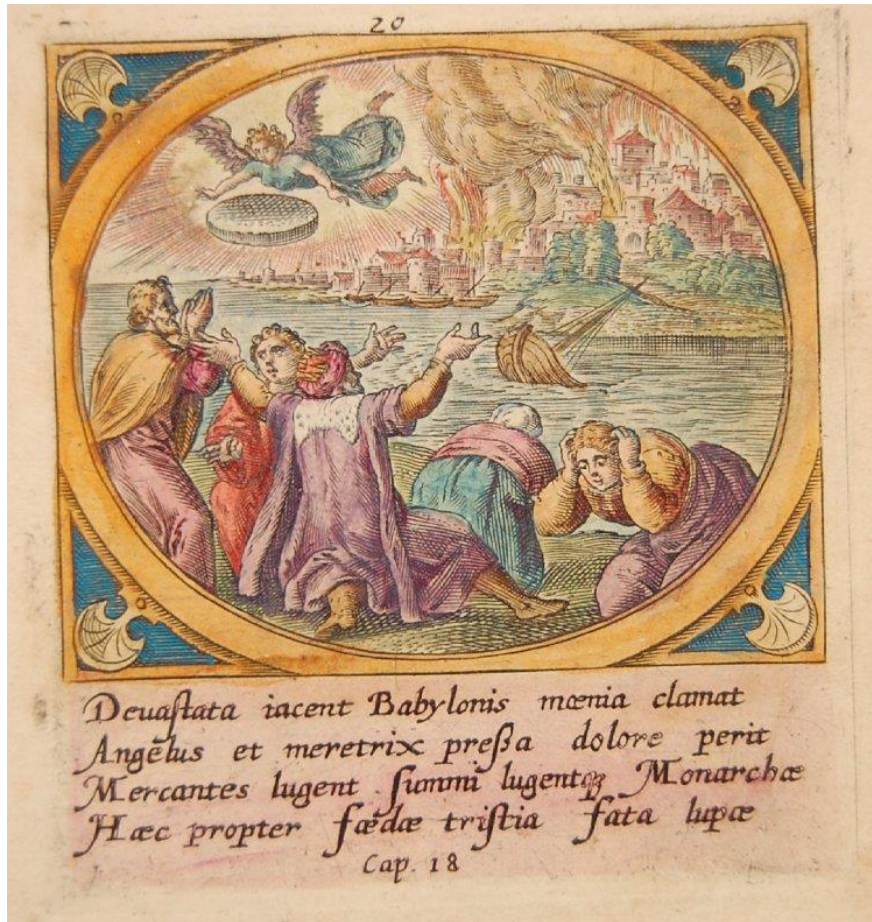 20
Deuaſtata iacent Babylonis mœnia clamat
Angelus et meretrix preßa dolore perit
Mercantes lugent ſummi lugentqꝫ Monarchæ
Hæc propter fœdæ triſtia fata lupæ
Cap. 18